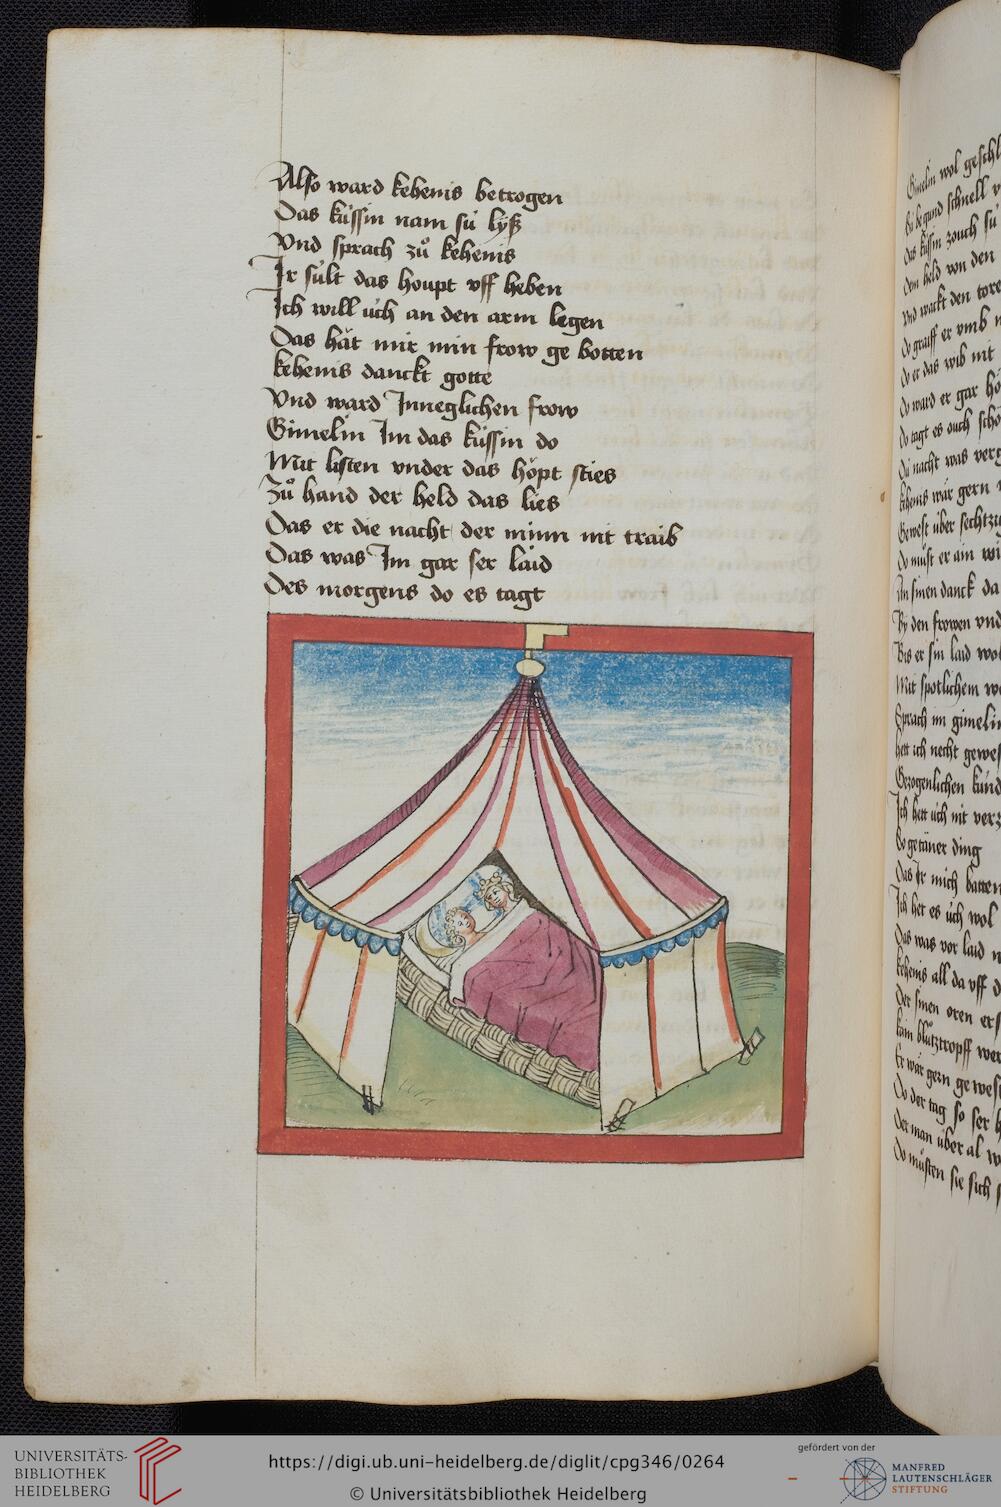 Also ward kehenis betrogen
Das küssin nam sü lÿß
Vnd sprach zů kehenis
Ir sült das houpt vff heben
Ich will üch an den arm legen
Das hät mir min frow ge botten
kehenis danckt gotte
Vnd ward Inneglichen frow
Gimelin Im das küssin do
Mit listen vnder das höpt sties
Zů hand der held das lies
Das er die nacht der minn nit traib
Das was Im gar ser laid
Des morgens do es tagt
Gimelin wol geschl
Sü begund schnell v
Das küssin zouch sü
Dem held von den
Vnd wackt den tore
Do graiff er vmb
Do er das wib nit
Do ward er gar hö
Do tagt es ouch scho
Dü nacht was verg
kehenis wär gern
Gewest über sechtzig
Do müst er am wi
An sinen danck da
By den frowen vnd
Bis er sin laid wol
Mit spotlichem wo
Sprach im gimelin
Hett ich necht gewes
Gezogenlichen künd
Ich hett üch nit verz
So getäner ding
Das Ir mich batten
Ich het es üch wol
Das was vor laid
kehenis all da vff d
Der sinen oren ers
kain blůtztropff wer
Er wär gern gewest
Do der tag so ser h
Der man über al w
Do müsten sie sich s
UNIVERSITÄTS-
BIBLIOTHEK
HEIDELBERG
https://digi.ub.uni-heidelberg.de/diglit/cpg346/0264
© Universitätsbibliothek Heidelberg
gefördert von der
MANFRED
LAUTENSCHLÄGER
STIFTUNG